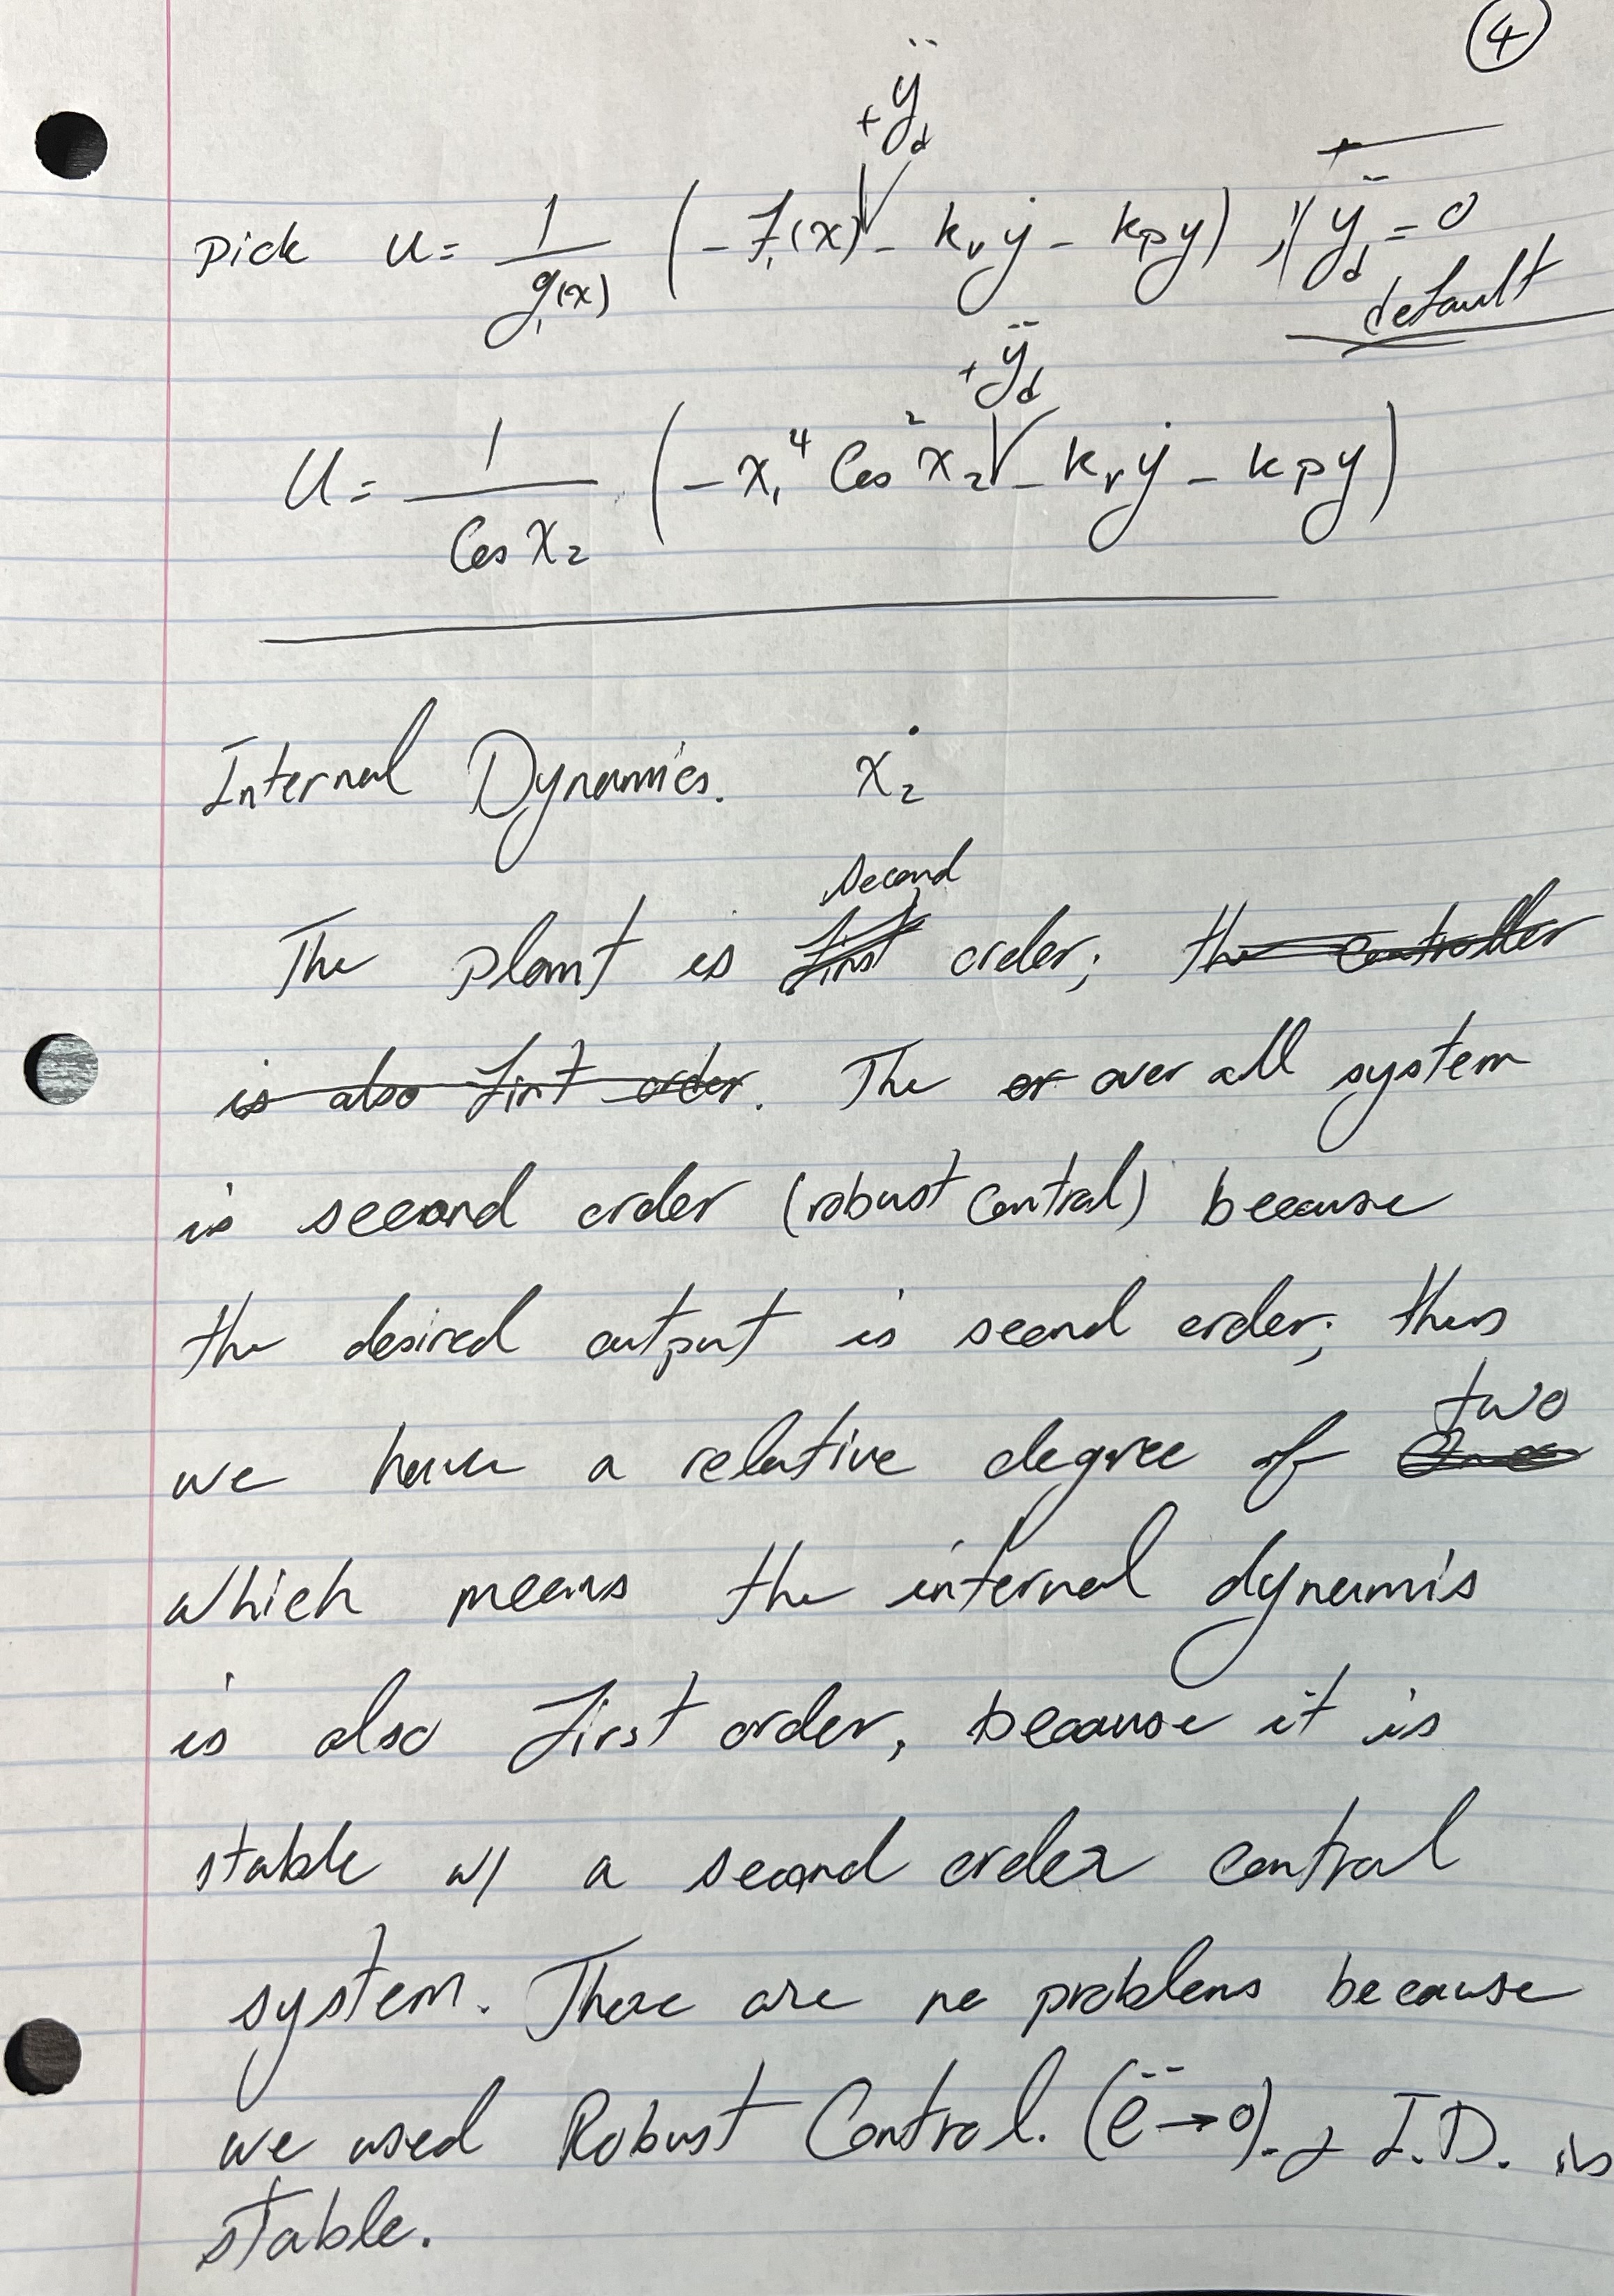 4
+ÿd
pick u = 1/g₁(x) (-f₁(x) - kvẏ - kpy) ; ÿd = 0
default
+ÿd
U = 1/Cos x₂ (-x₁⁴ Cos²x₂ - kvẏ - kpy)
Internal Dynamics. ẋ₂
second
The plant is first order; the controller
is also first order. The or over all system
is second order (robust control) because
the desired output is second order; thus
two
we have a relative degree of One
which means the internal dynamis
is also first order, because it is
stable w/ a second order control
system. There are no problems because
we used Robust Control. (ë→0). & I.D. is
stable.